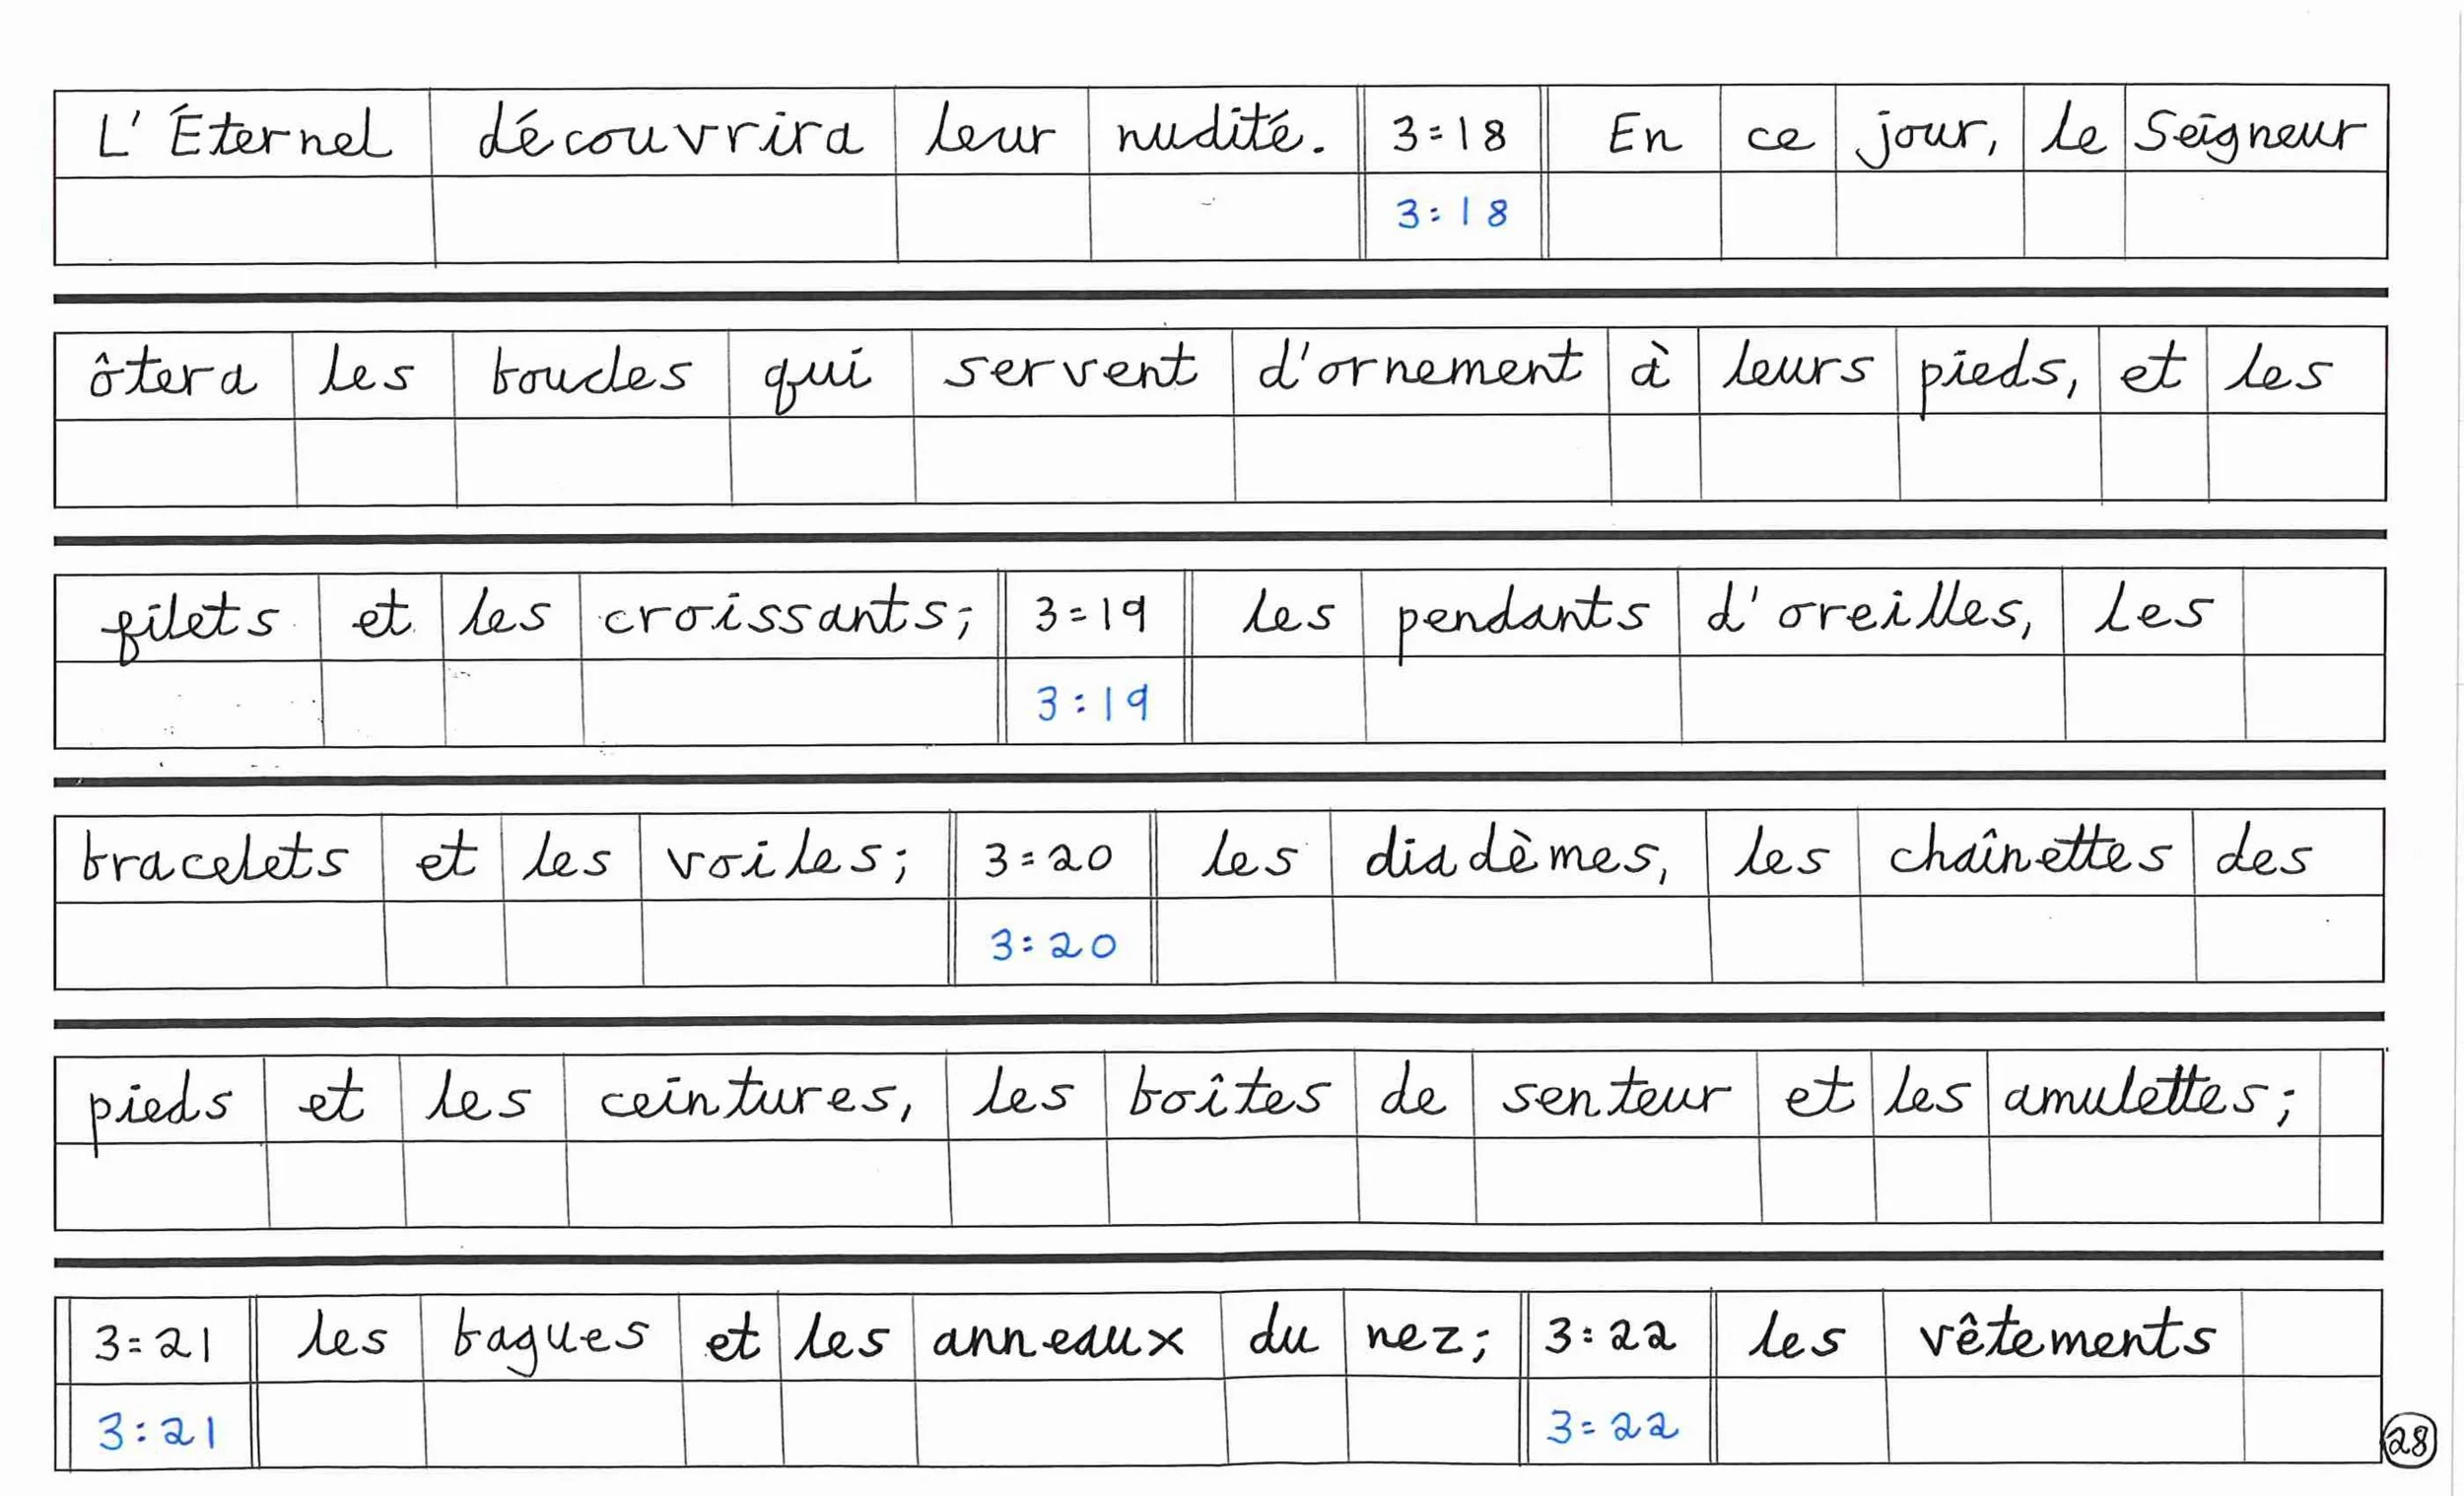 L'Éternel découvrira leur nudité. 3:18 En ce jour, le Seigneur
3:18
ôtera les boucles qui servent d'ornement à leurs pieds, et les
filets et les croissants; 3:19 les pendants d'oreilles, les
3:19
bracelets et les voiles; 3:20 les diadèmes, les chaînettes des
3:20
pieds et les ceintures, les boîtes de senteur et les amulettes;
3:21 les bagues et les anneaux du nez; 3:22 les vêtements
3:21 3:22
28